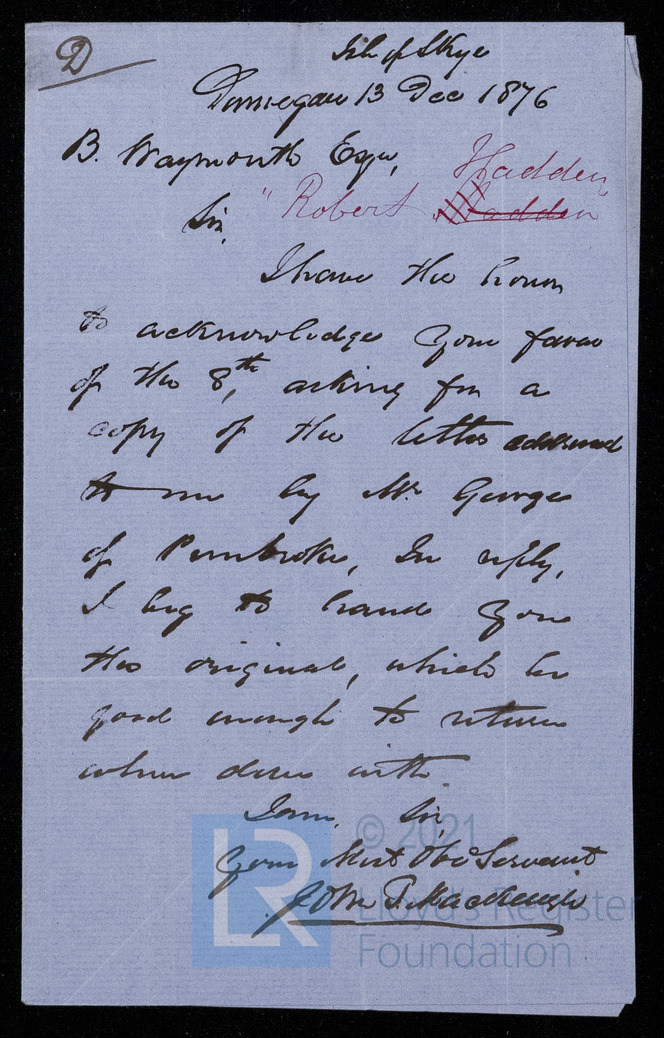 D
Isle of Skye
Dunvegan 13 Dec 1876
B. Waymouth Esqr,
Hadden
Sir, "Robert Hadden"
I have the honor
to acknowledge your favor
of the 8th, asking for a
copy of the letter addressed
to me by Mr. George
of Pembroke, In reply,
I beg to hand you
the original, which be
good enough to return
when done with
I am, Sir,
Your Most Obt Servant
John T. Mackenzie
LR
© 2021
Lloyd's Register
Foundation